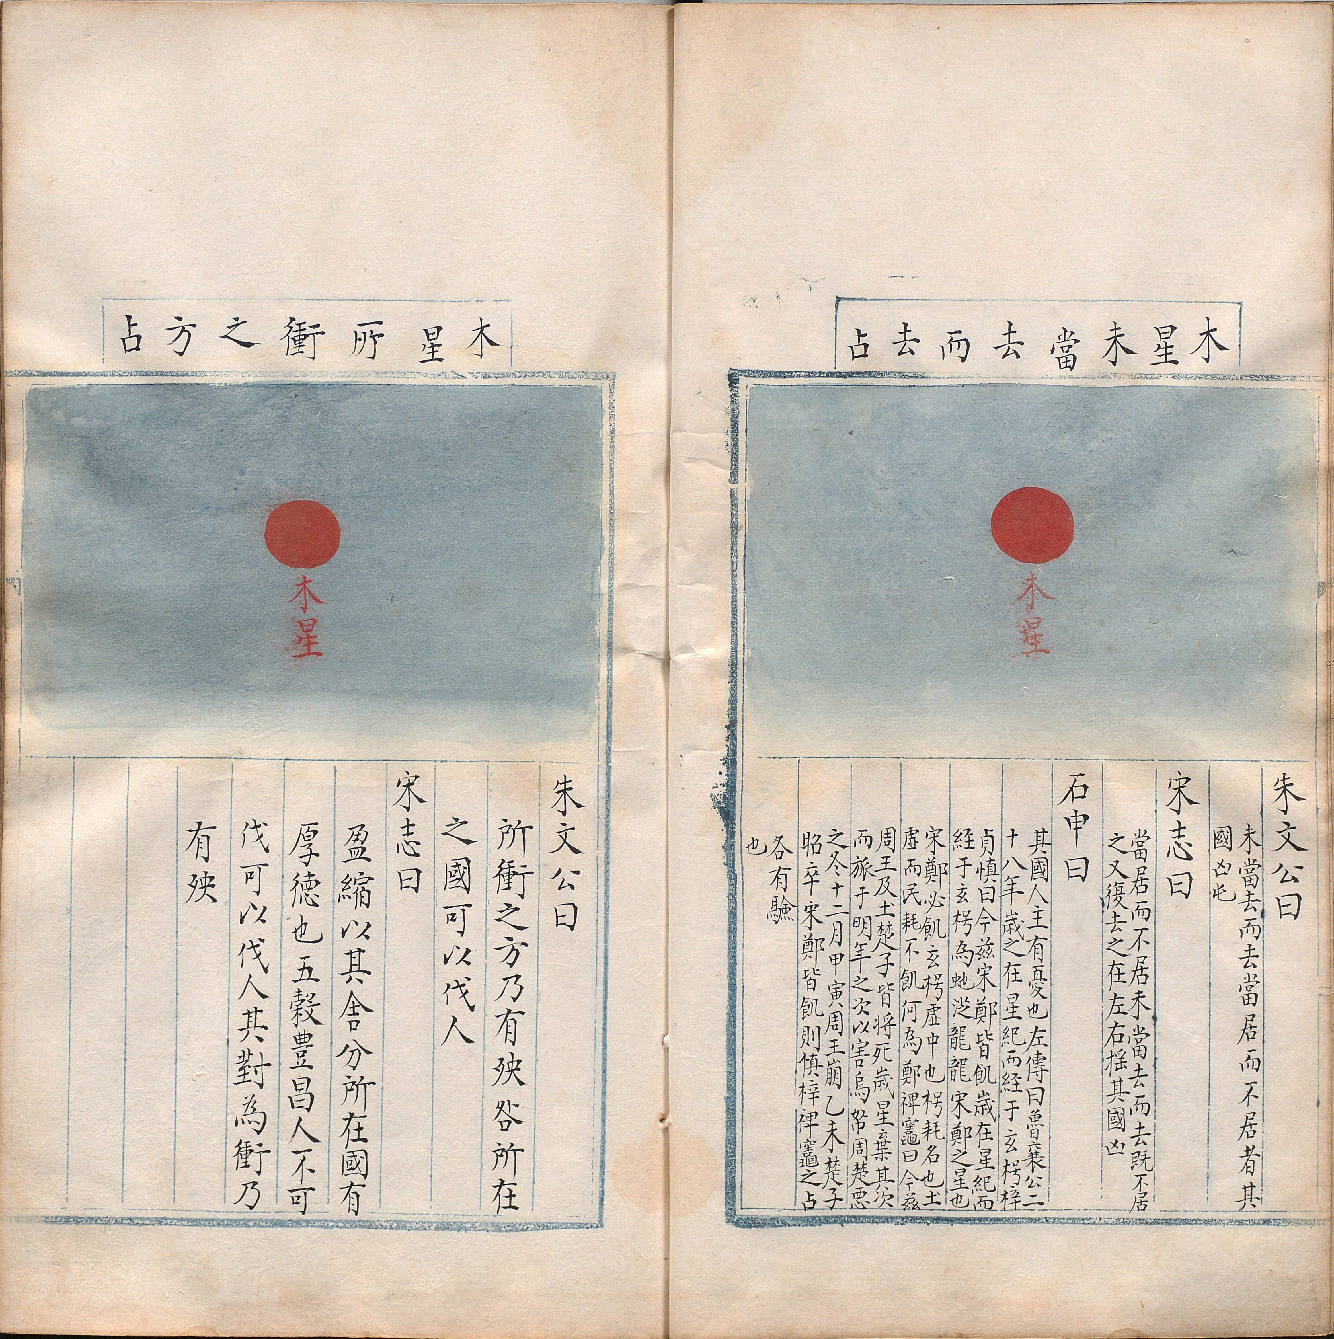 木星未當去而去占
木星
朱文公曰
未當去而去當居而不居者其
國凶也
宋志曰
當居而不居未當去而去既不居
之又復去之在左右搖其國凶
石申曰
其國人主有憂也左傳曰魯襄公二
十八年歲之在星紀而経于玄枵梓
貞慎曰今兹宋鄭皆飢歲在星紀而
経于玄枵為虵逆龍龍宋鄭之星也
宋鄭必飢玄枵虛中也枵耗名也土
虛而民耗不飢何為鄭裨竈曰今兹
周王及土楚子皆將死歲星棄其次
而旅于明年之次以害鳥帑周楚惡
之冬十二月甲寅周王崩乙未楚子
昭卒宋鄭皆飢則慎梓裨竈之占
各有驗
也
木星所衝之方占
木星
朱文公曰
所衝之方乃有殃咎所在
之國可以伐人
宋志曰
盈縮以其舍分所在國有
厚德也五穀豊昌人不可
伐可以伐人其對為衝乃
有殃